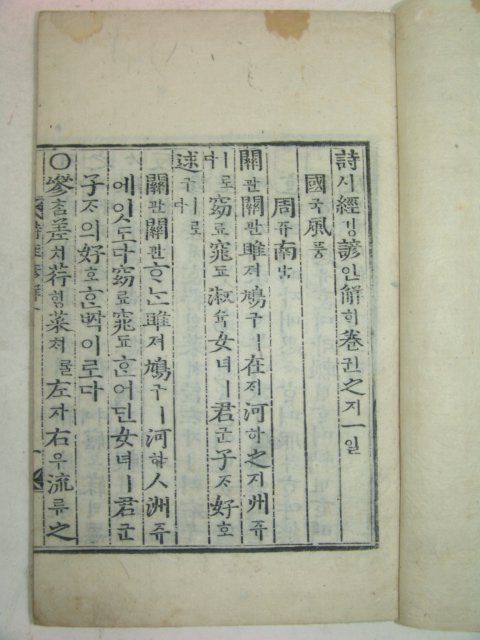 詩시經경諺언解해卷권之지一일
國국風풍
周쥬南남
關관關관雎져鳩구ㅣ在재河하之지洲쥬
ㅣ로다窈요窕됴淑슉女녀ㅣ君군子ᄌᆞ好호
逑구ㅣ로다
關관關관ᄒᆞᄂᆞᆫ雎져鳩구ㅣ河하ㅅ洲쥬
에잇도다窈요窕됴ᄒᆞᆫ어딘女녀ㅣ君군
子ᄌᆞ의好호ᄒᆞᆫ짝이로다
○參참差치荇ᄒᆡᆼ菜ᄎᆡ를左좌右우流류之